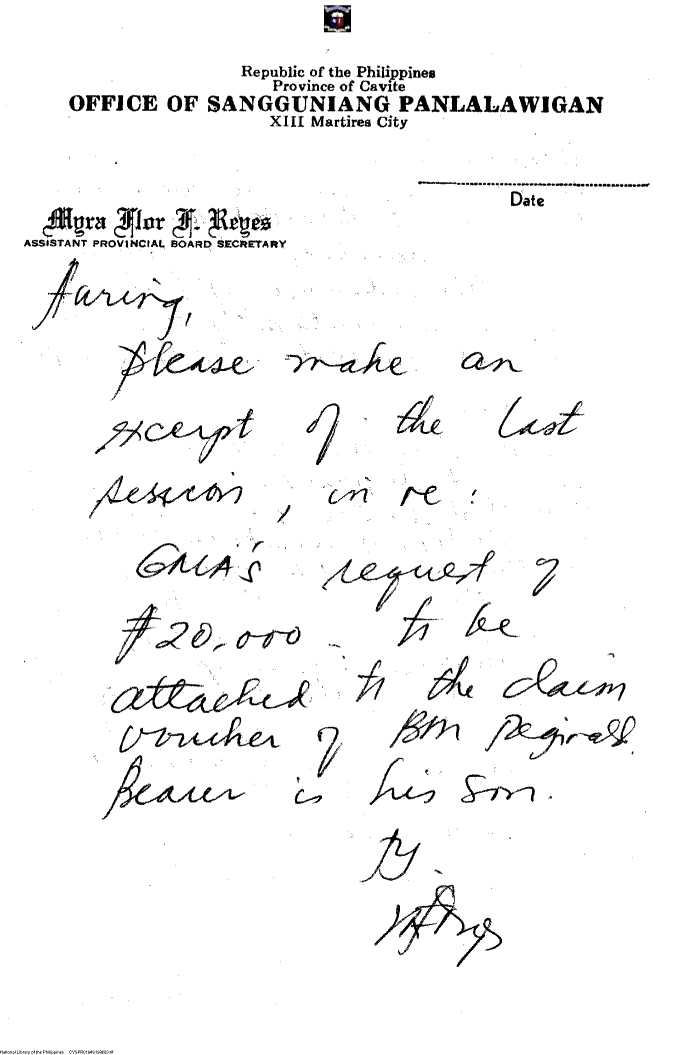 Republic of the Philippines
Province of Cavite
OFFICE OF SANGGUNIANG PANLALAWIGAN
XIII Martires City
Date
Myra Flor F. Reyes
ASSISTANT PROVINCIAL BOARD SECRETARY
please make an
excerpt of the last
session, in re:
GMA's request of
₱20,000 - to be
attached to the claim
voucher of BM Reginald.
Bearer is his son.
Ty.
National Library of the Philippines